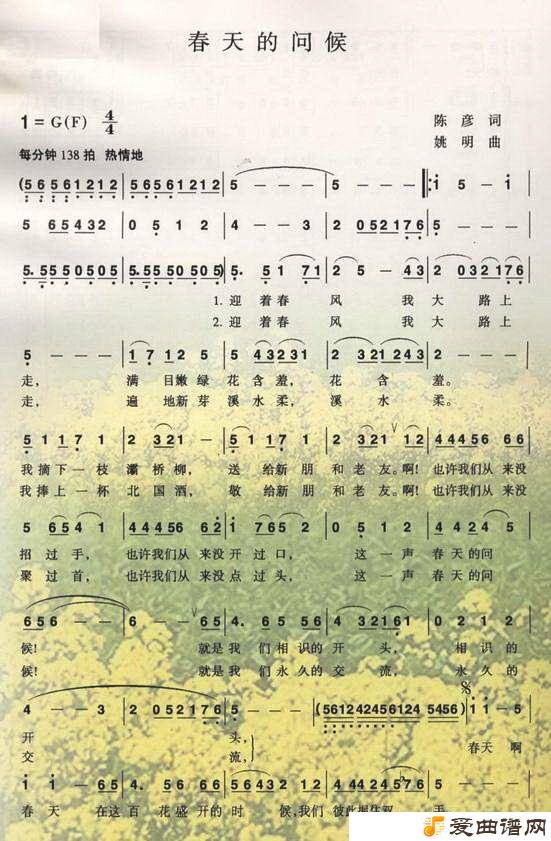 春天的问候
1=G(F) 4/4
陈彦 词
每分钟138拍 热情地
姚明 曲
(5 6 5 6 1 2 1 2 | 5 6 5 6 1 2 1 2 | 5 - - - | 5 - - - :‖: 5 - 1
5 6 5 4 3 2 | 0 5 1 2 | 4 - - 3 | 2 0 5 2 1 7 6
5. 5 5 5 0 5 0 5 | 5. 5 5 5 0 5 0 5) | 5. 1 1 7 1 | 2 5 - 4 3 | 2 0 3 2 1 7 6
1.迎着春 风 我大路上
2.迎着春 风 我大路上
5 - - - | 1 7 1 2 | 5 4 3 2 3 1 | 2 3 2 1 2 4 3 | 2 - - -
走, 满目嫩绿 花含羞, 花含羞。
走, 遍地新芽 溪水柔, 溪水柔。
5 1 1 7 1 | 2 3 2 1 - | 5. 1 1 7 1 | 2 3 2 1 1 2 | 4 4 4 5 6 6 0
我摘下一枝 灞桥柳, 送给新朋和老友。啊! 也许我们从来没
我捧上一杯 北国酒, 敬给新朋和老友。啊! 也许我们从来没
5 6 5 4 1 | 4 4 4 5 6 6 0 2 | 1 7 6 5 2 | 0 5 1 2 | 4 5 4 2 4 5
招过手, 也许我们从来没开过口, 这一声 春天的问
聚过首, 也许我们从来没点过头, 这一声 春天的问
6 5 6 - - | 6 - - 6 5 | 4. 5 6 5 4 | 3. 2 3 1 | 0 2 1 2
候! 就是我们相识的开头, 相识的
候! 就是我们永久的交流, 永久的
4 - - 3 | 2 0 5 2 1 7 6 | 5 - - - | (5 6 1 2 4 2 4 5 6 1 2 4 5 4 5 6) | 1 1 - 5
开 头,
交 流,
春天 啊
春天 在这百花盛开的时候,我们
爱曲谱网